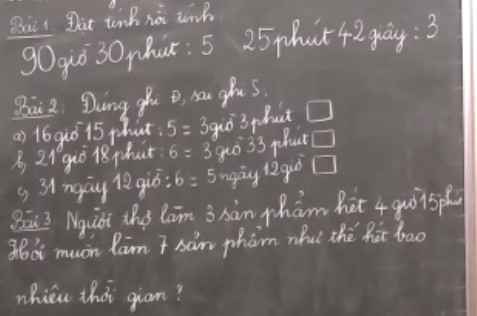 Bài 1 Đặt tính rồi tính
90 giờ 30 phút : 5 25 phút 42 giây : 3
Bài 2: Đúng ghi Đ, sai ghi S.
a) 16 giờ 15 phút : 5 = 3 giờ 3 phút
b, 21 giờ 18 phút : 6 = 3 giờ 33 phút
c, 31 ngày 12 giờ : 6 = 5 ngày 12 giờ
Bài 3 Người thợ làm 3 sản phẩm hết 4 giờ 15 phút
Hỏi muốn làm 7 sản phẩm như thế hết bao
nhiêu thời gian ?